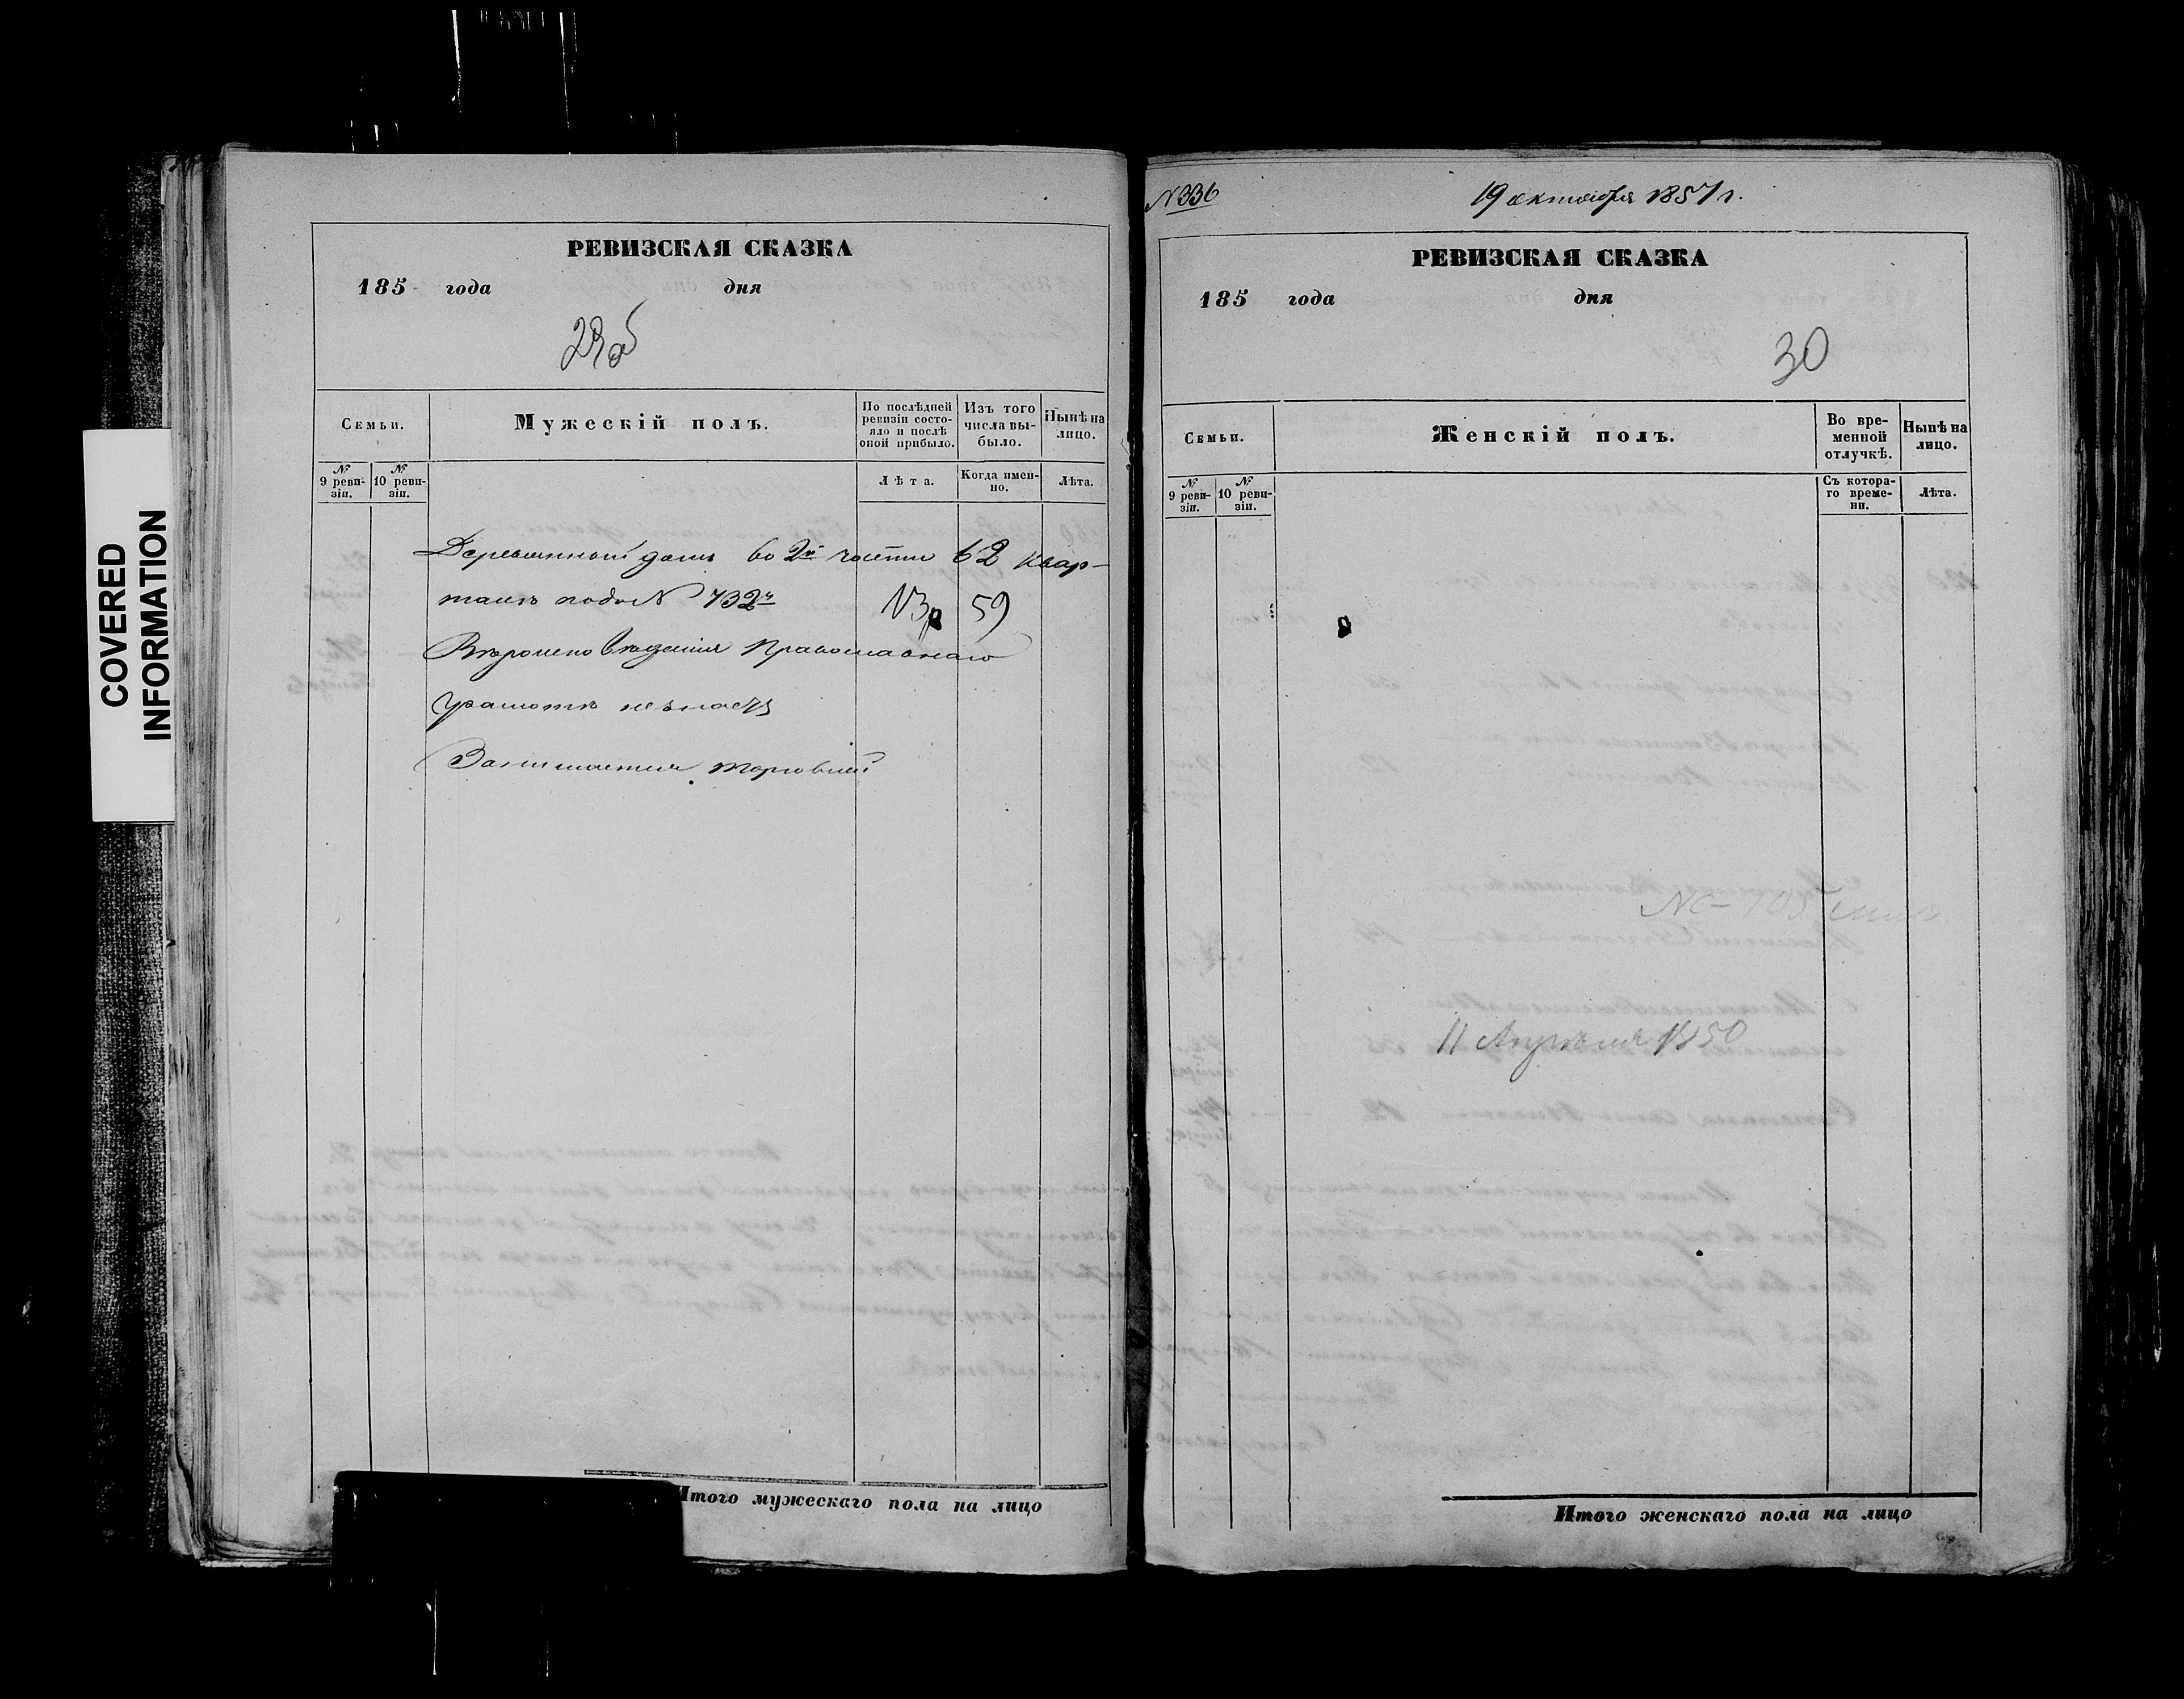 COVERED
INFORMATION
РЕВИЗСКАЯ СКАЗКА
185 года дня
29об
Семьи.
Мужескій полъ.
По послѣдней ревизіи состояло и послѣ оной прибыло.
Изъ того числа выбыло.
Нынѣ на лицо.
№ 9 ревизіи.
№ 10 ревизіи.
Лѣта.
Когда именно.
Лѣта.
Деревянный домъ во 2й части 62 квар-
талѣ подъ № 732м
59
Вѣроисповѣданія Православнаго
Грамотѣ незнаетъ
Занимается торговлей
Итого мужескаго пола на лицо
N 336
19 октября 1857 г.
РЕВИЗСКАЯ СКАЗКА
185 года дня
30
Семьи.
Женскій полъ.
Во временной отлучкѣ.
Нынѣ на лицо.
№ 9 ревизіи.
№ 10 ревизіи.
Съ котораго времени.
Лѣта.
11 Апрѣля 1850
Итого женскаго пола на лицо